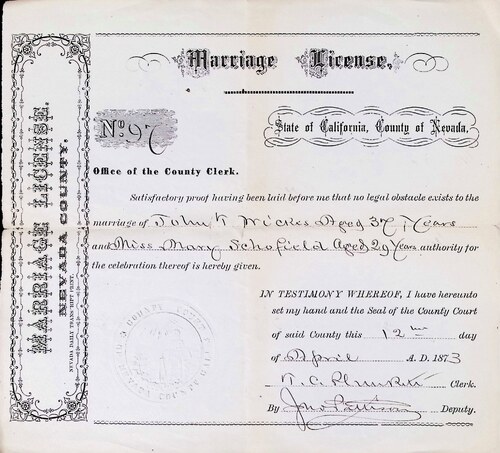 Marriage License.
No. 97
State of California, County of Nevada.
Office of the County Clerk.
Satisfactory proof having been laid before me that no legal obstacle exists to the
marriage of John T Wickes Aged 37 Years
and Miss Mary Schofield Aged 29 Years authority for
the celebration thereof is hereby given.
IN TESTIMONY WHEREOF, I have hereunto
set my hand and the Seal of the County Court
of said County this 12 day
of April A. D. 1873
T. C. Plunkett Clerk.
By Jno Pattison Deputy.
MARRIAGE LICENSE.
NEVADA COUNTY.
NEVADA DAILY TRANSCRIPT PRINT.